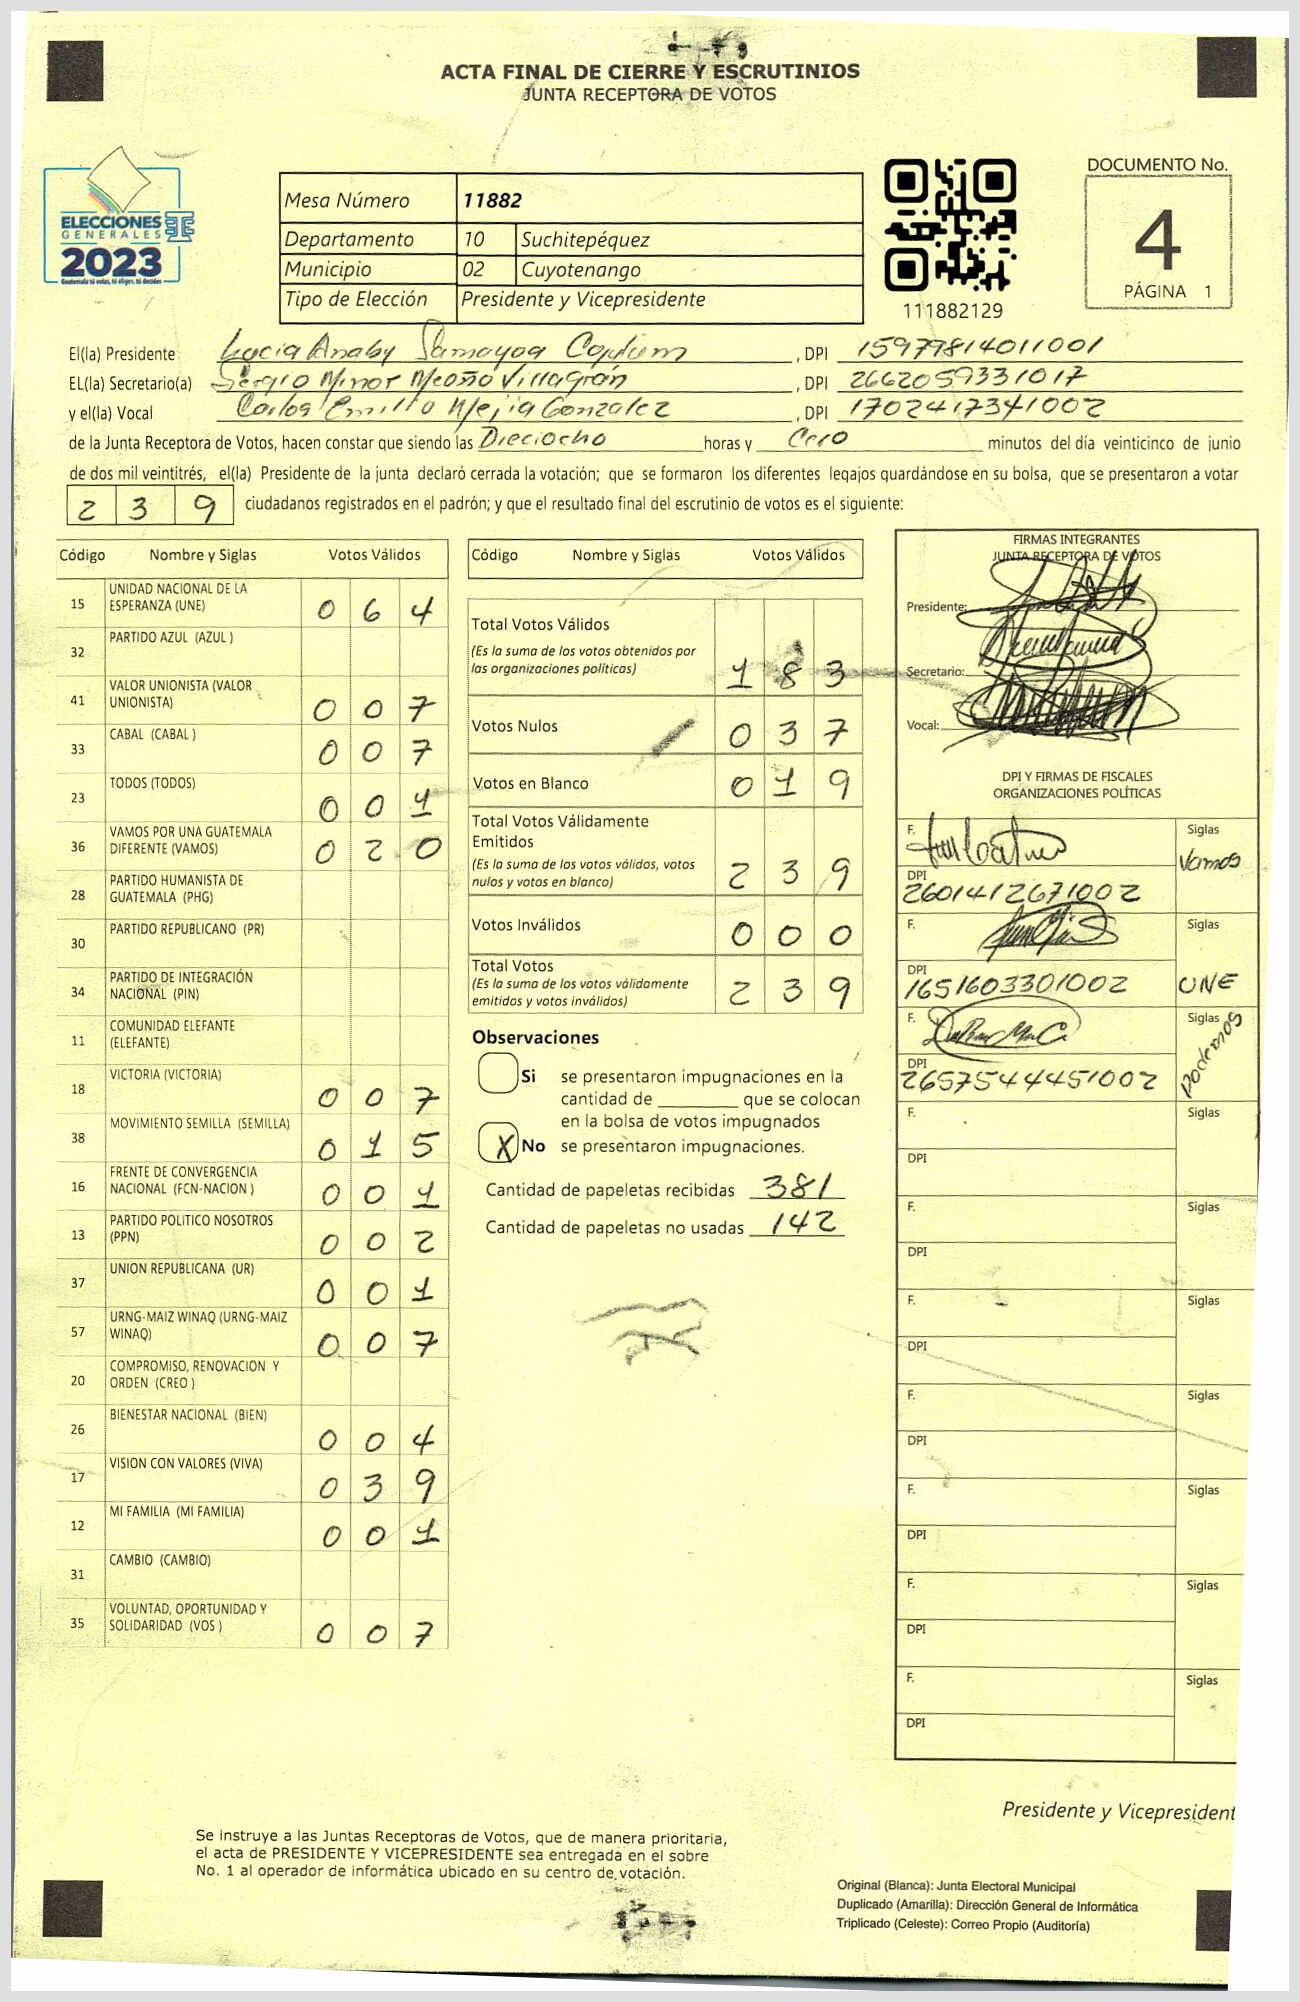 ACTA FINAL DE CIERRE Y ESCRUTINIOS
JUNTA RECEPTORA DE VOTOS
ELECCIONES
GENERALES
2023
Guatemala tú votas, tú eliges, tú decides
Mesa Número 11882
Departamento 10 Suchitepéquez
Municipio 02 Cuyotenango
Tipo de Elección Presidente y Vicepresidente
111882129
DOCUMENTO No.
4
PÁGINA 1
El(la) Presidente Lucia Anaby Samayoa , DPI 15979814011001
EL(la) Secretario(a) Sergio Minor Meoño Villagrán , DPI 2662059331017
y el(la) Vocal Carlos Emilio Mejia Gonzalez , DPI 1702417341002
de la Junta Receptora de Votos, hacen constar que siendo las Dieciocho horas y Cero minutos del día veinticinco de junio
de dos mil veintitrés, el(la) Presidente de la junta declaró cerrada la votación; que se formaron los diferentes legajos guardándose en su bolsa, que se presentaron a votar
2 3 9 ciudadanos registrados en el padrón; y que el resultado final del escrutinio de votos es el siguiente:
Código Nombre y Siglas Votos Válidos
15 UNIDAD NACIONAL DE LA ESPERANZA (UNE) 0 6 4
32 PARTIDO AZUL (AZUL )
41 VALOR UNIONISTA (VALOR UNIONISTA) 0 0 7
33 CABAL (CABAL ) 0 0 7
23 TODOS (TODOS) 0 0 1
36 VAMOS POR UNA GUATEMALA DIFERENTE (VAMOS) 0 2 0
28 PARTIDO HUMANISTA DE GUATEMALA (PHG)
30 PARTIDO REPUBLICANO (PR)
34 PARTIDO DE INTEGRACIÓN NACIONAL (PIN)
11 COMUNIDAD ELEFANTE (ELEFANTE)
18 VICTORIA (VICTORIA) 0 0 7
38 MOVIMIENTO SEMILLA (SEMILLA) 0 1 5
16 FRENTE DE CONVERGENCIA NACIONAL (FCN-NACION ) 0 0 1
13 PARTIDO POLITICO NOSOTROS (PPN) 0 0 2
37 UNION REPUBLICANA (UR) 0 0 1
57 URNG-MAIZ WINAQ (URNG-MAIZ WINAQ) 0 0 7
20 COMPROMISO, RENOVACION Y ORDEN (CREO )
26 BIENESTAR NACIONAL (BIEN) 0 0 4
17 VISION CON VALORES (VIVA) 0 3 9
12 MI FAMILIA (MI FAMILIA) 0 0 1
31 CAMBIO (CAMBIO)
35 VOLUNTAD, OPORTUNIDAD Y SOLIDARIDAD (VOS ) 0 0 7
Código Nombre y Siglas Votos Válidos
Total Votos Válidos
(Es la suma de los votos obtenidos por
las organizaciones políticas) 1 8 3
Votos Nulos 0 3 7
Votos en Blanco 0 1 9
Total Votos Válidamente
Emitidos
(Es la suma de los votos válidos, votos
nulos y votos en blanco) 2 3 9
Votos Inválidos 0 0 0
Total Votos
(Es la suma de los votos válidamente
emitidos y votos inválidos) 2 3 9
Observaciones
Si se presentaron impugnaciones en la
cantidad de ________ que se colocan
en la bolsa de votos impugnados
X No se presentaron impugnaciones.
Cantidad de papeletas recibidas 381
Cantidad de papeletas no usadas 142
FIRMAS INTEGRANTES
JUNTA RECEPTORA DE VOTOS
Presidente:
Secretario:
Vocal:
DPI Y FIRMAS DE FISCALES
ORGANIZACIONES POLÍTICAS
F. Siglas
Vamos
DPI
2601412671002
F. Siglas
DPI
1651603301002 UNE
F. Siglas
Podemos
DPI
2657544451002
F. Siglas
DPI
F. Siglas
DPI
F. Siglas
DPI
F. Siglas
DPI
F. Siglas
DPI
F. Siglas
DPI
F. Siglas
DPI
Presidente y Vicepresident
Se instruye a las Juntas Receptoras de Votos, que de manera prioritaria,
el acta de PRESIDENTE Y VICEPRESIDENTE sea entregada en el sobre
No. 1 al operador de informática ubicado en su centro de votación.
Original (Blanca): Junta Electoral Municipal
Duplicado (Amarilla): Dirección General de Informática
Triplicado (Celeste): Correo Propio (Auditoría)